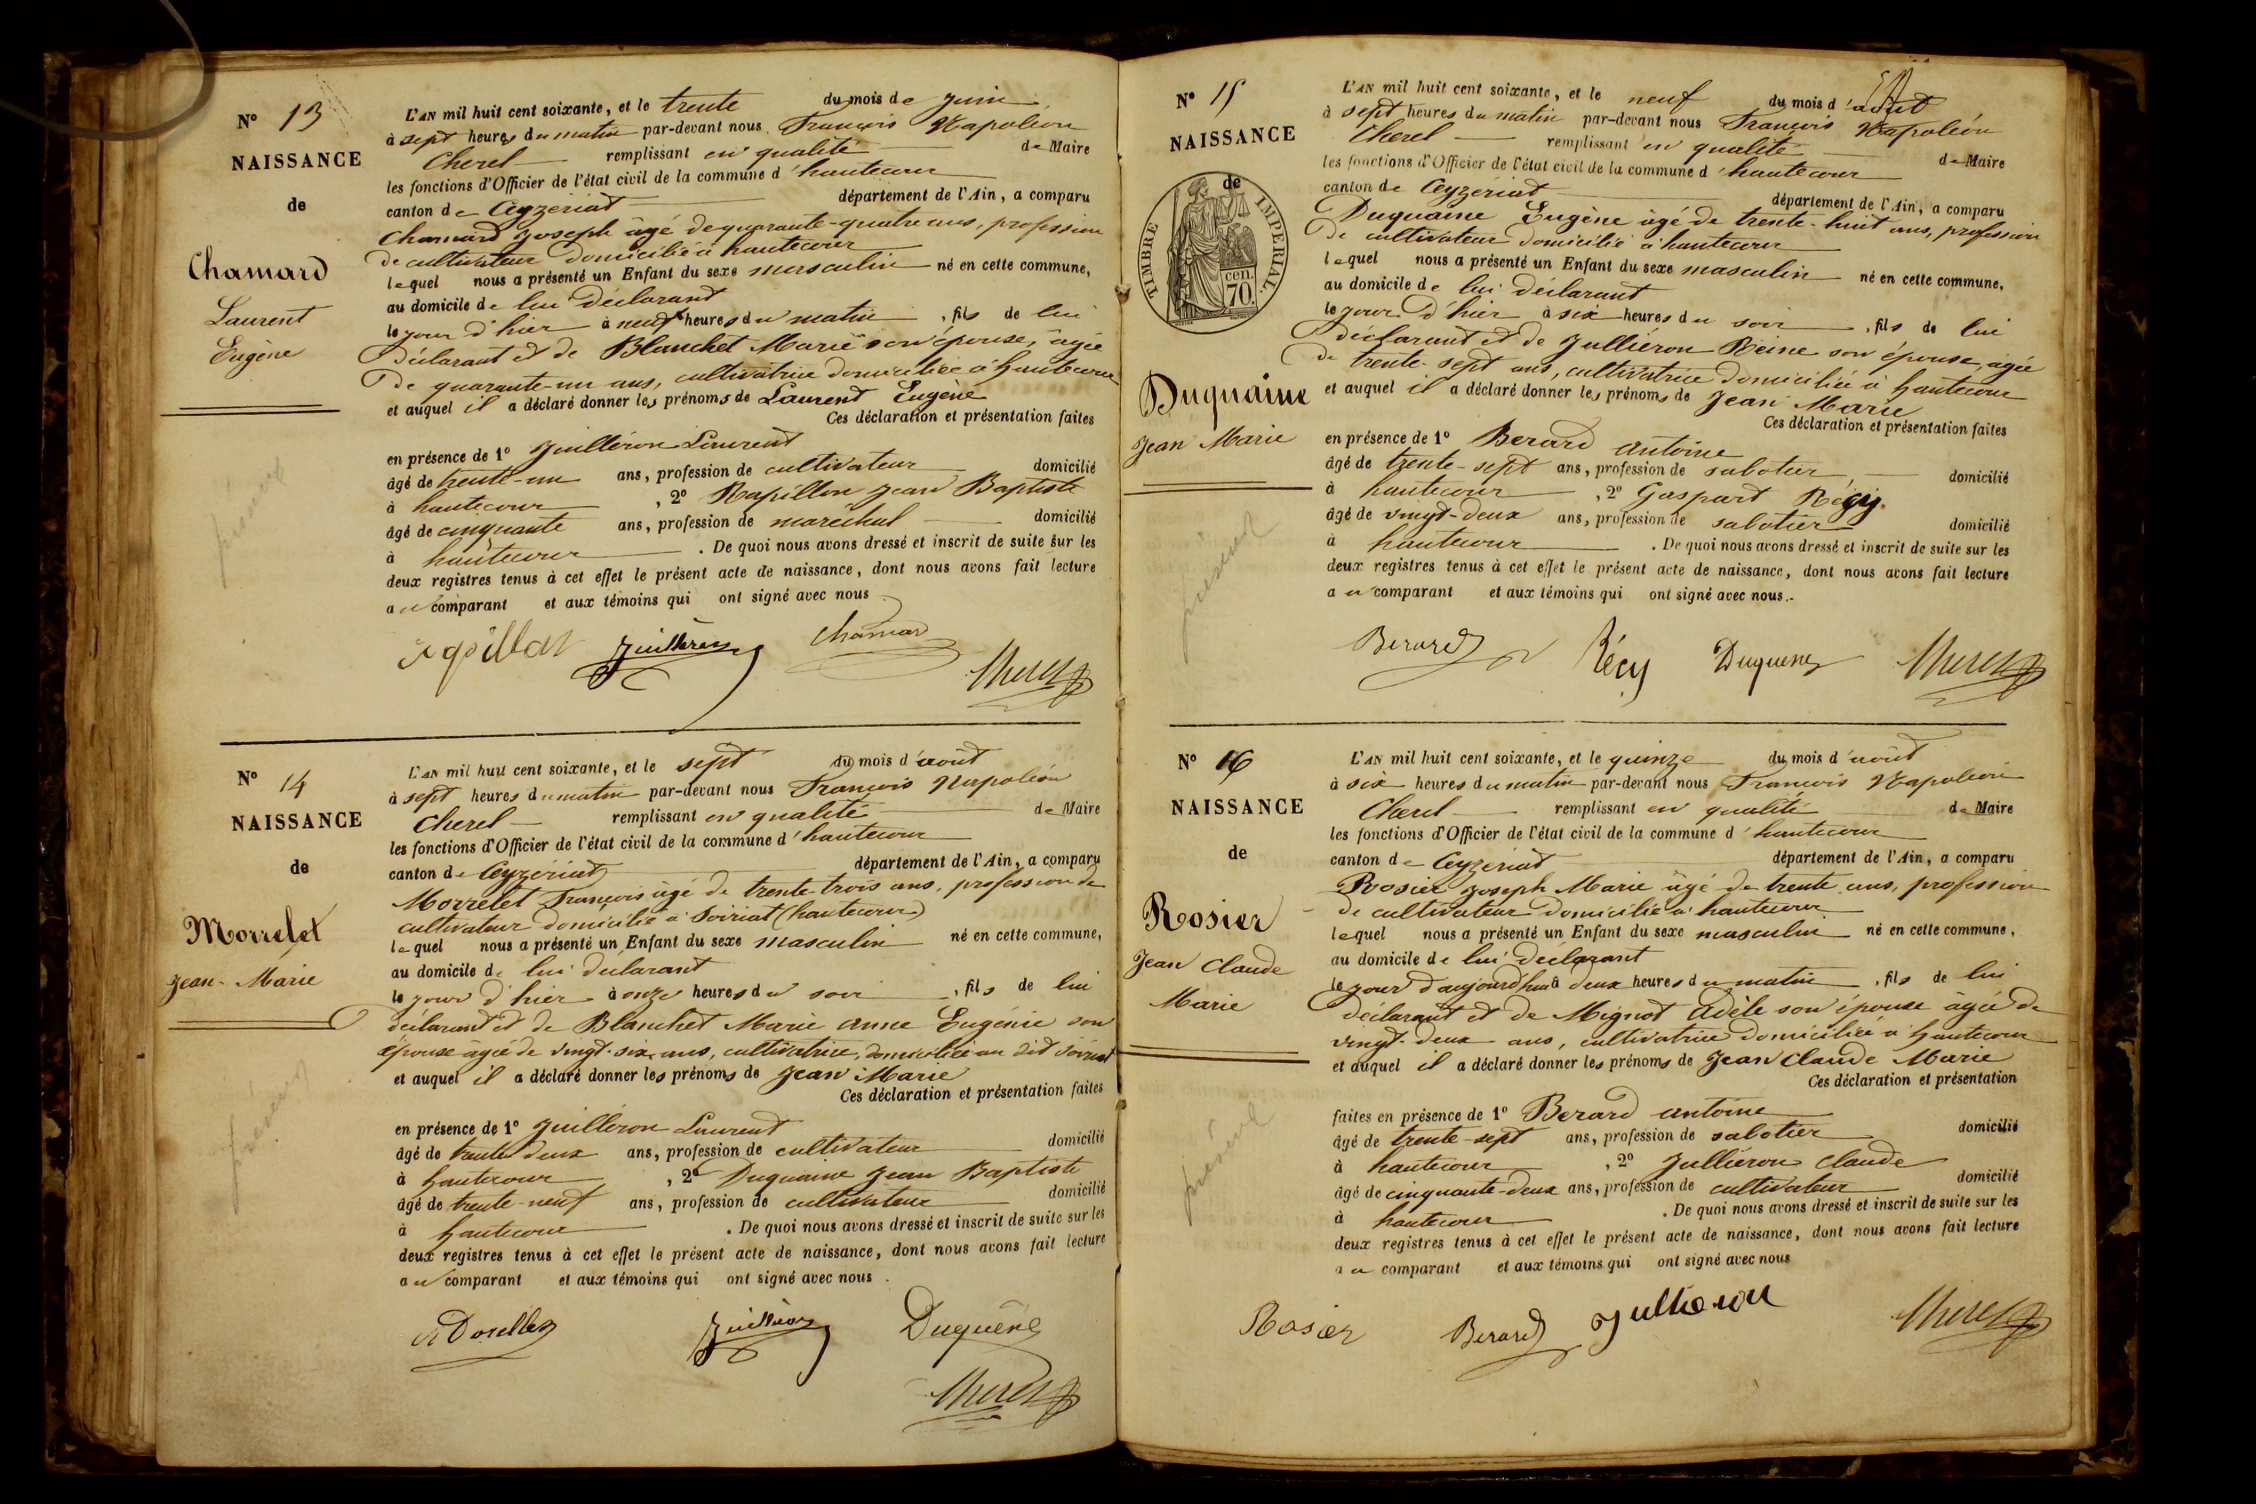 N° 13
NAISSANCE
de
Chamard
Laurent
Eugène
L'AN mil huit cent soixante, et le trente du mois de juin
à sept heures du matin par-devant nous François Napoléon
Cherel remplissant en qualité de Maire
les fonctions d'Officier de l'état civil de la commune d'hautecour
canton de Ceyzeriat département de l'Ain, a comparu
Chamard Joseph âgé de quarante-quatre ans, profession
de cultivateur domicilié à hautecour
lequel nous a présenté un Enfant du sexe masculin né en cette commune,
au domicile de lui déclarant
le jour d'hier à neuf heures du matin, fils de lui
déclarant et de Blanchet Marie son épouse, âgée
de quarante-un ans, cultivatrice domiciliée à hautecour
et auquel il a déclaré donner les prénoms de Laurent Eugène
Ces déclaration et présentation faites
en présence de 1° Juilléron Laurent
âgé de trente-un ans, profession de cultivateur domicilié
à hautecour, 2° Rapillon Jean Baptiste
âgé de cinquante ans, profession de maréchal domicilié
à hautecour. De quoi nous avons dressé et inscrit de suite sur les
deux registres tenus à cet effet le présent acte de naissance, dont nous avons fait lecture
au comparant et aux témoins qui ont signé avec nous.
Juilleron Chamard
Cherel
N° 14
NAISSANCE
de
Morrelet
Jean-Marie
L'AN mil huit cent soixante, et le sept du mois d'août
à sept heures du matin par-devant nous François Napoléon
Cherel remplissant en qualité de Maire
les fonctions d'Officier de l'état civil de la commune d'hautecour
canton de Ceyzériat département de l'Ain, a comparu
Morrelet François âgé de trente trois ans, profession de
cultivateur domicilié à Soiriat (hautecour)
lequel nous a présenté un Enfant du sexe masculin né en cette commune,
au domicile de lui déclarant
le jour d'hier à onze heures du soir, fils de lui
déclarant et de Blanchet Marie Anne Eugénie son
épouse âgée de vingt-six ans, cultivatrice, domiciliée au dit Soiriat
et auquel il a déclaré donner les prénoms de Jean Marie
Ces déclaration et présentation faites
en présence de 1° Juilléron Laurent
âgé de trente deux ans, profession de cultivateur domicilié
à hautecour, 2° Duquaine Jean Baptiste
âgé de trente-neuf ans, profession de cultivateur domicilié
à hautecour. De quoi nous avons dressé et inscrit de suite sur les
deux registres tenus à cet effet le présent acte de naissance, dont nous avons fait lecture
au comparant et aux témoins qui ont signé avec nous.
Juilleron Duquêne
Cherel
N° 15
NAISSANCE
de
TIMBRE IMPERIAL
70 cen.
Duquaine
Jean Marie
L'AN mil huit cent soixante, et le neuf du mois d'août
à sept heures du matin par-devant nous François Napoléon
Cherel remplissant en qualité de Maire
les fonctions d'Officier de l'état civil de la commune d'hautecour
canton de Ceyzériat département de l'Ain, a comparu
Duquaine Eugène âgé de trente-huit ans, profession
de cultivateur domicilié à hautecour
lequel nous a présenté un Enfant du sexe masculin né en cette commune,
au domicile de lui déclarant
le jour d'hier à six heures du soir, fils de lui
déclarant et de Julliéron Reine son épouse, âgée
de trente-sept ans, cultivatrice domiciliée à hautecour
et auquel il a déclaré donner les prénoms de Jean Marie
Ces déclaration et présentation faites
en présence de 1° Berard Antoine
âgé de trente-sept ans, profession de sabotier domicilié
à hautecour, 2° Gaspart Récy.
âgé de vingt-deux ans, profession de sabotier domicilié
à hautecour. De quoi nous avons dressé et inscrit de suite sur les
deux registres tenus à cet effet le présent acte de naissance, dont nous avons fait lecture
au comparant et aux témoins qui ont signé avec nous.
Berard Récy Duquene Cherel
N° 16
NAISSANCE
de
Rosier
Jean Claude
Marie
L'AN mil huit cent soixante, et le quinze du mois d'août
à six heures du matin par-devant nous François Napoléon
Cherel remplissant en qualité de Maire
les fonctions d'Officier de l'état civil de la commune d'hautecour
canton de Ceyzériat département de l'Ain, a comparu
Rosier Joseph Marie âgé de trente ans, profession
de cultivateur domicilié à hautecour
lequel nous a présenté un Enfant du sexe masculin né en cette commune,
au domicile de lui déclarant
le jour d'aujourd'hui à deux heures du matin, fils de lui
déclarant et de Mignot Adèle son épouse âgée de
vingt-deux ans, cultivatrice domiciliée à hautecour
et auquel il a déclaré donner les prénoms de Jean Claude Marie
Ces déclaration et présentation
faites en présence de 1° Berard Antoine
âgé de trente-sept ans, profession de sabotier domicilié
à hautecour, 2° Julliéron Claude
âgé de cinquante-deux ans, profession de cultivateur domicilié
à hautecour. De quoi nous avons dressé et inscrit de suite sur les
deux registres tenus à cet effet le présent acte de naissance, dont nous avons fait lecture
au comparant et aux témoins qui ont signé avec nous
Rosier Berard Jullieron Cherel